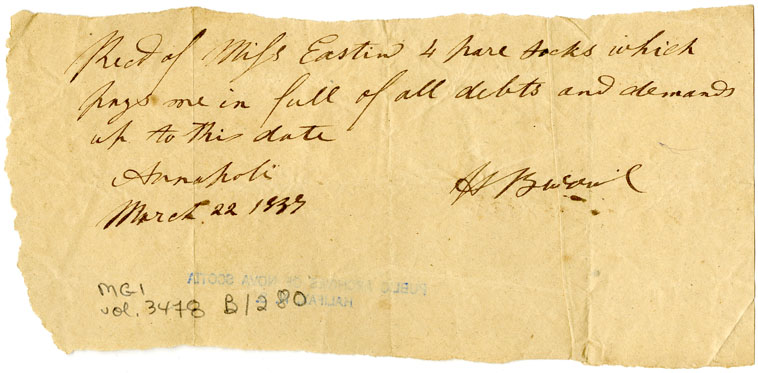 Recd of Miss Eastin 4 pare socks which
pays me in full of all debts and demands
up to this date
Annapoli
March 22 1837
H
PUBLIC ARCHIVES OF NOVA SCOTIA
HALIFAX
MG1
vol. 3478 B/280